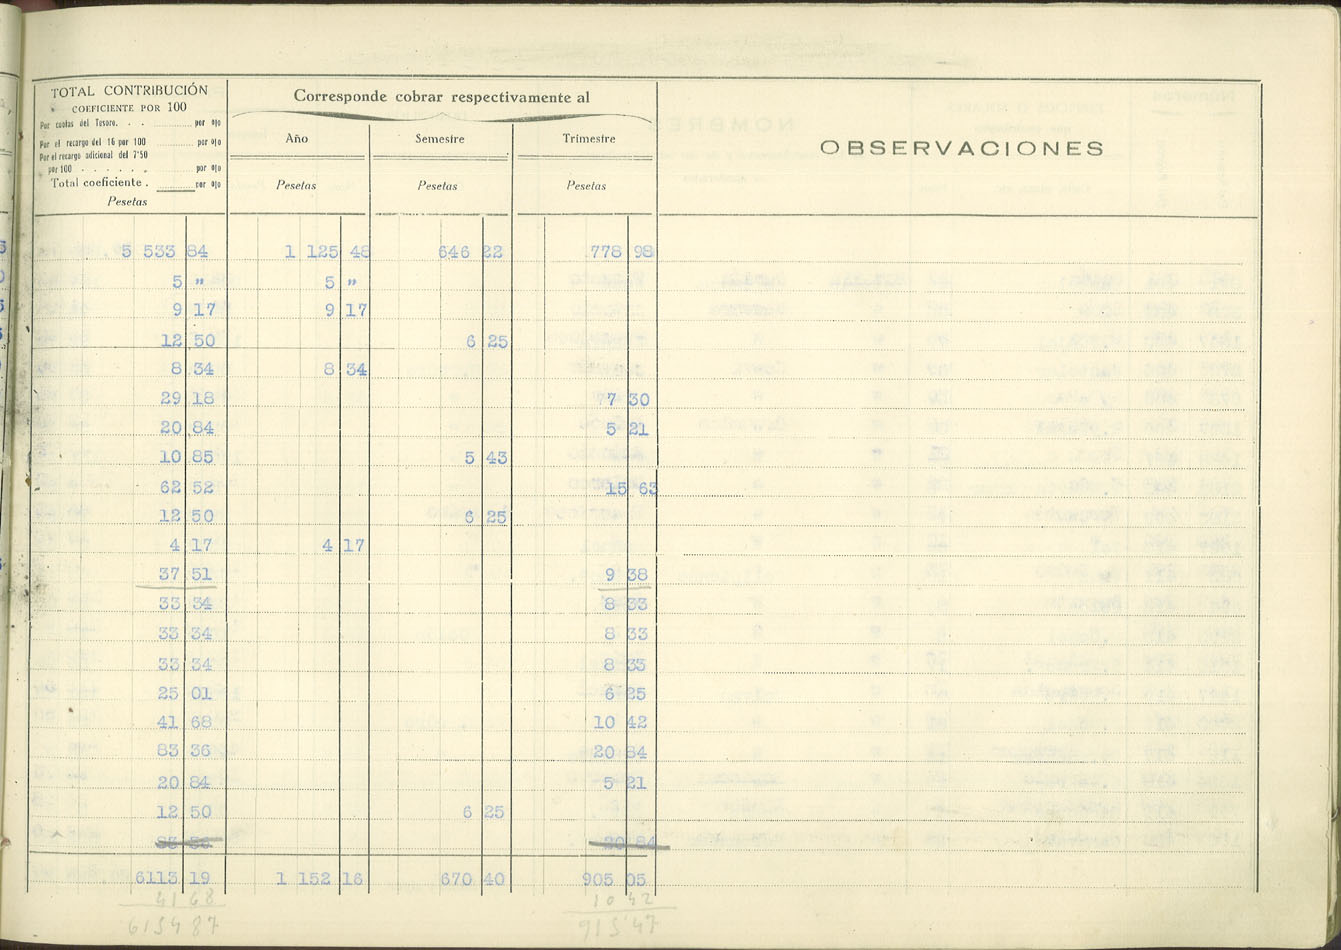 TOTAL CONTRIBUCIÓN
COEFICIENTE POR 100
Por cuotas del Tesoro. . . por o|o
Por el recargo del 16 por 100 por o|o
Por el recargo adicional del 7'50
por 100 . . . . . . por o|o
Total coeficiente . por o|o
Pesetas
Corresponde cobrar respectivamente al
Año Semestre Trimestre
Pesetas Pesetas Pesetas
OBSERVACIONES
5 533 84 1 125 48 646 22 778 98
5 „ 5 „
9 17 9 17
12 50 6 25
8 34 8 34
29 18 7 30
20 84 5 21
10 85 5 43
62 52 15 63
12 50 6 25
4 17 4 17
37 51 9 38
33 34 8 33
33 34 8 33
33 34 8 33
25 01 6 25
41 68 10 42
83 36 20 84
20 84 5 21
12 50 6 25
83 36 20 84
6113 19 1 152 16 670 40 905 05
41 68 10 42
6154 87 915'47